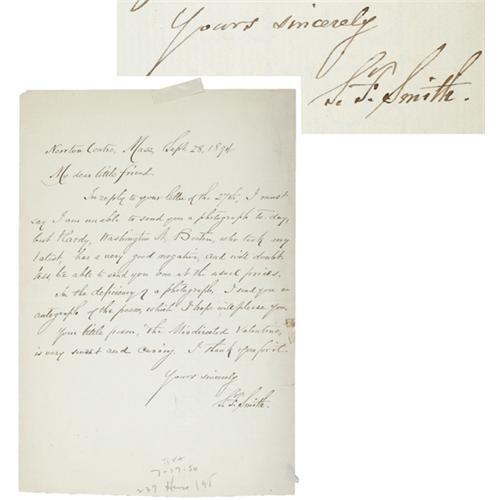 Yours sincerely
S. F. Smith.
Newton Centre, Mass, Sept. 28, 1894.
My dear little friend.
In reply to your letter of the 27th, I must
say I am unable to send you a photograph to-day,
but Hardy, Washington St. Boston, who took my
latest, has a very good negative, and will doubt
less be able to send you one at the usual prices.
In the deficiency of a photograph, I send you an
autograph of the poem, which I hope will please you.
Your little poem, "the Misdirected Valentine,"
is very sweet and cunning. I thank you for it.
Yours sincerely
S. F. Smith.
7-17-50